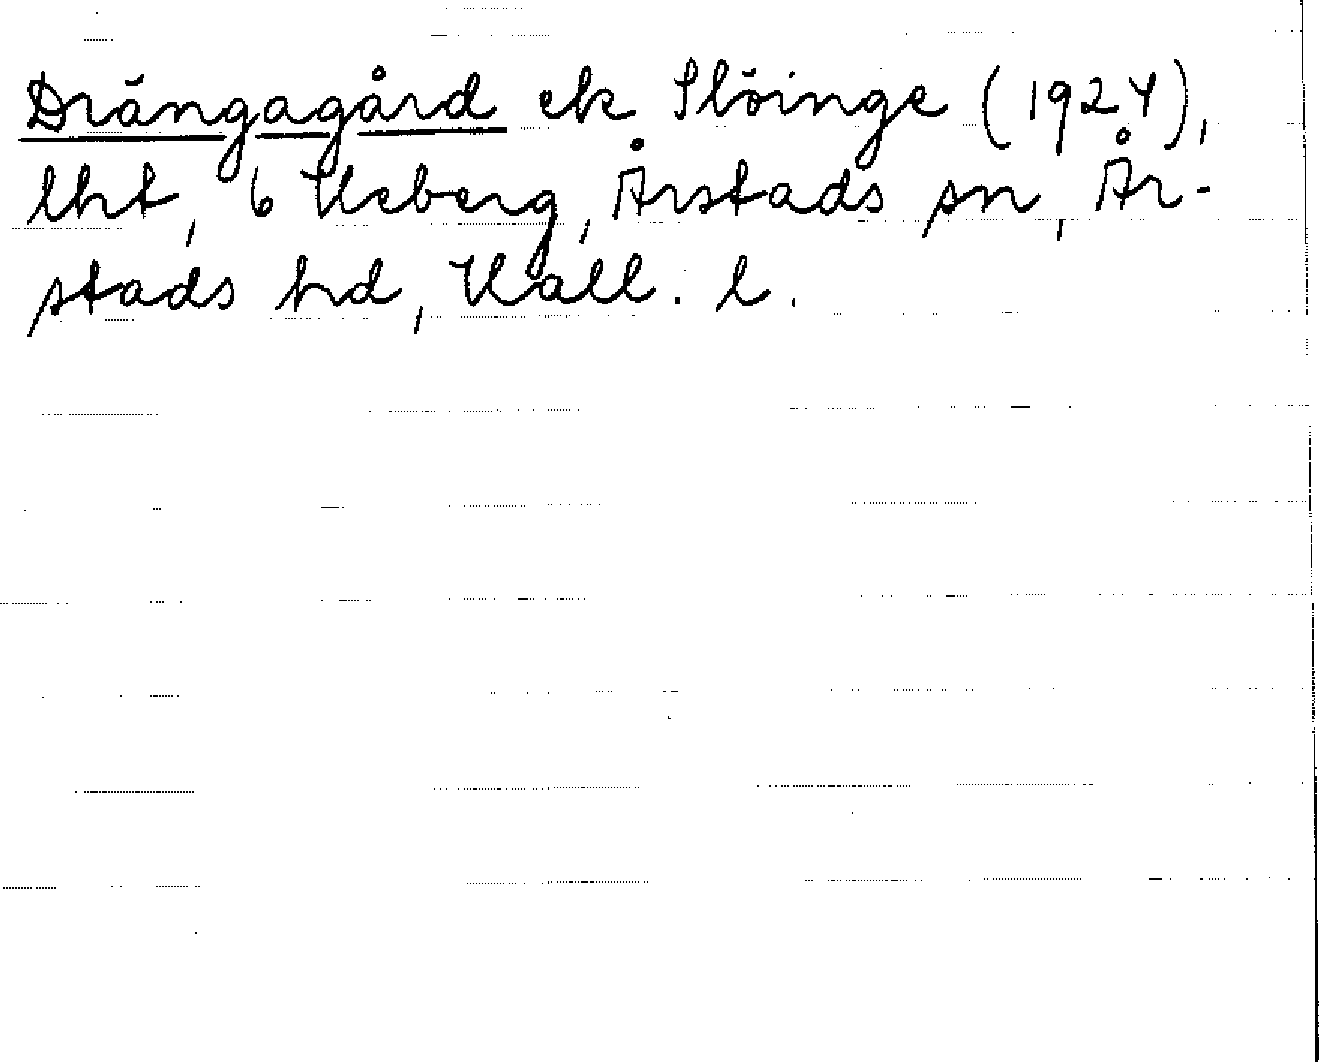 Drängagård ek Slöinge (1924),
lht, 6 Heberg, Årstads sn, År-
stads hd, Hall. l.